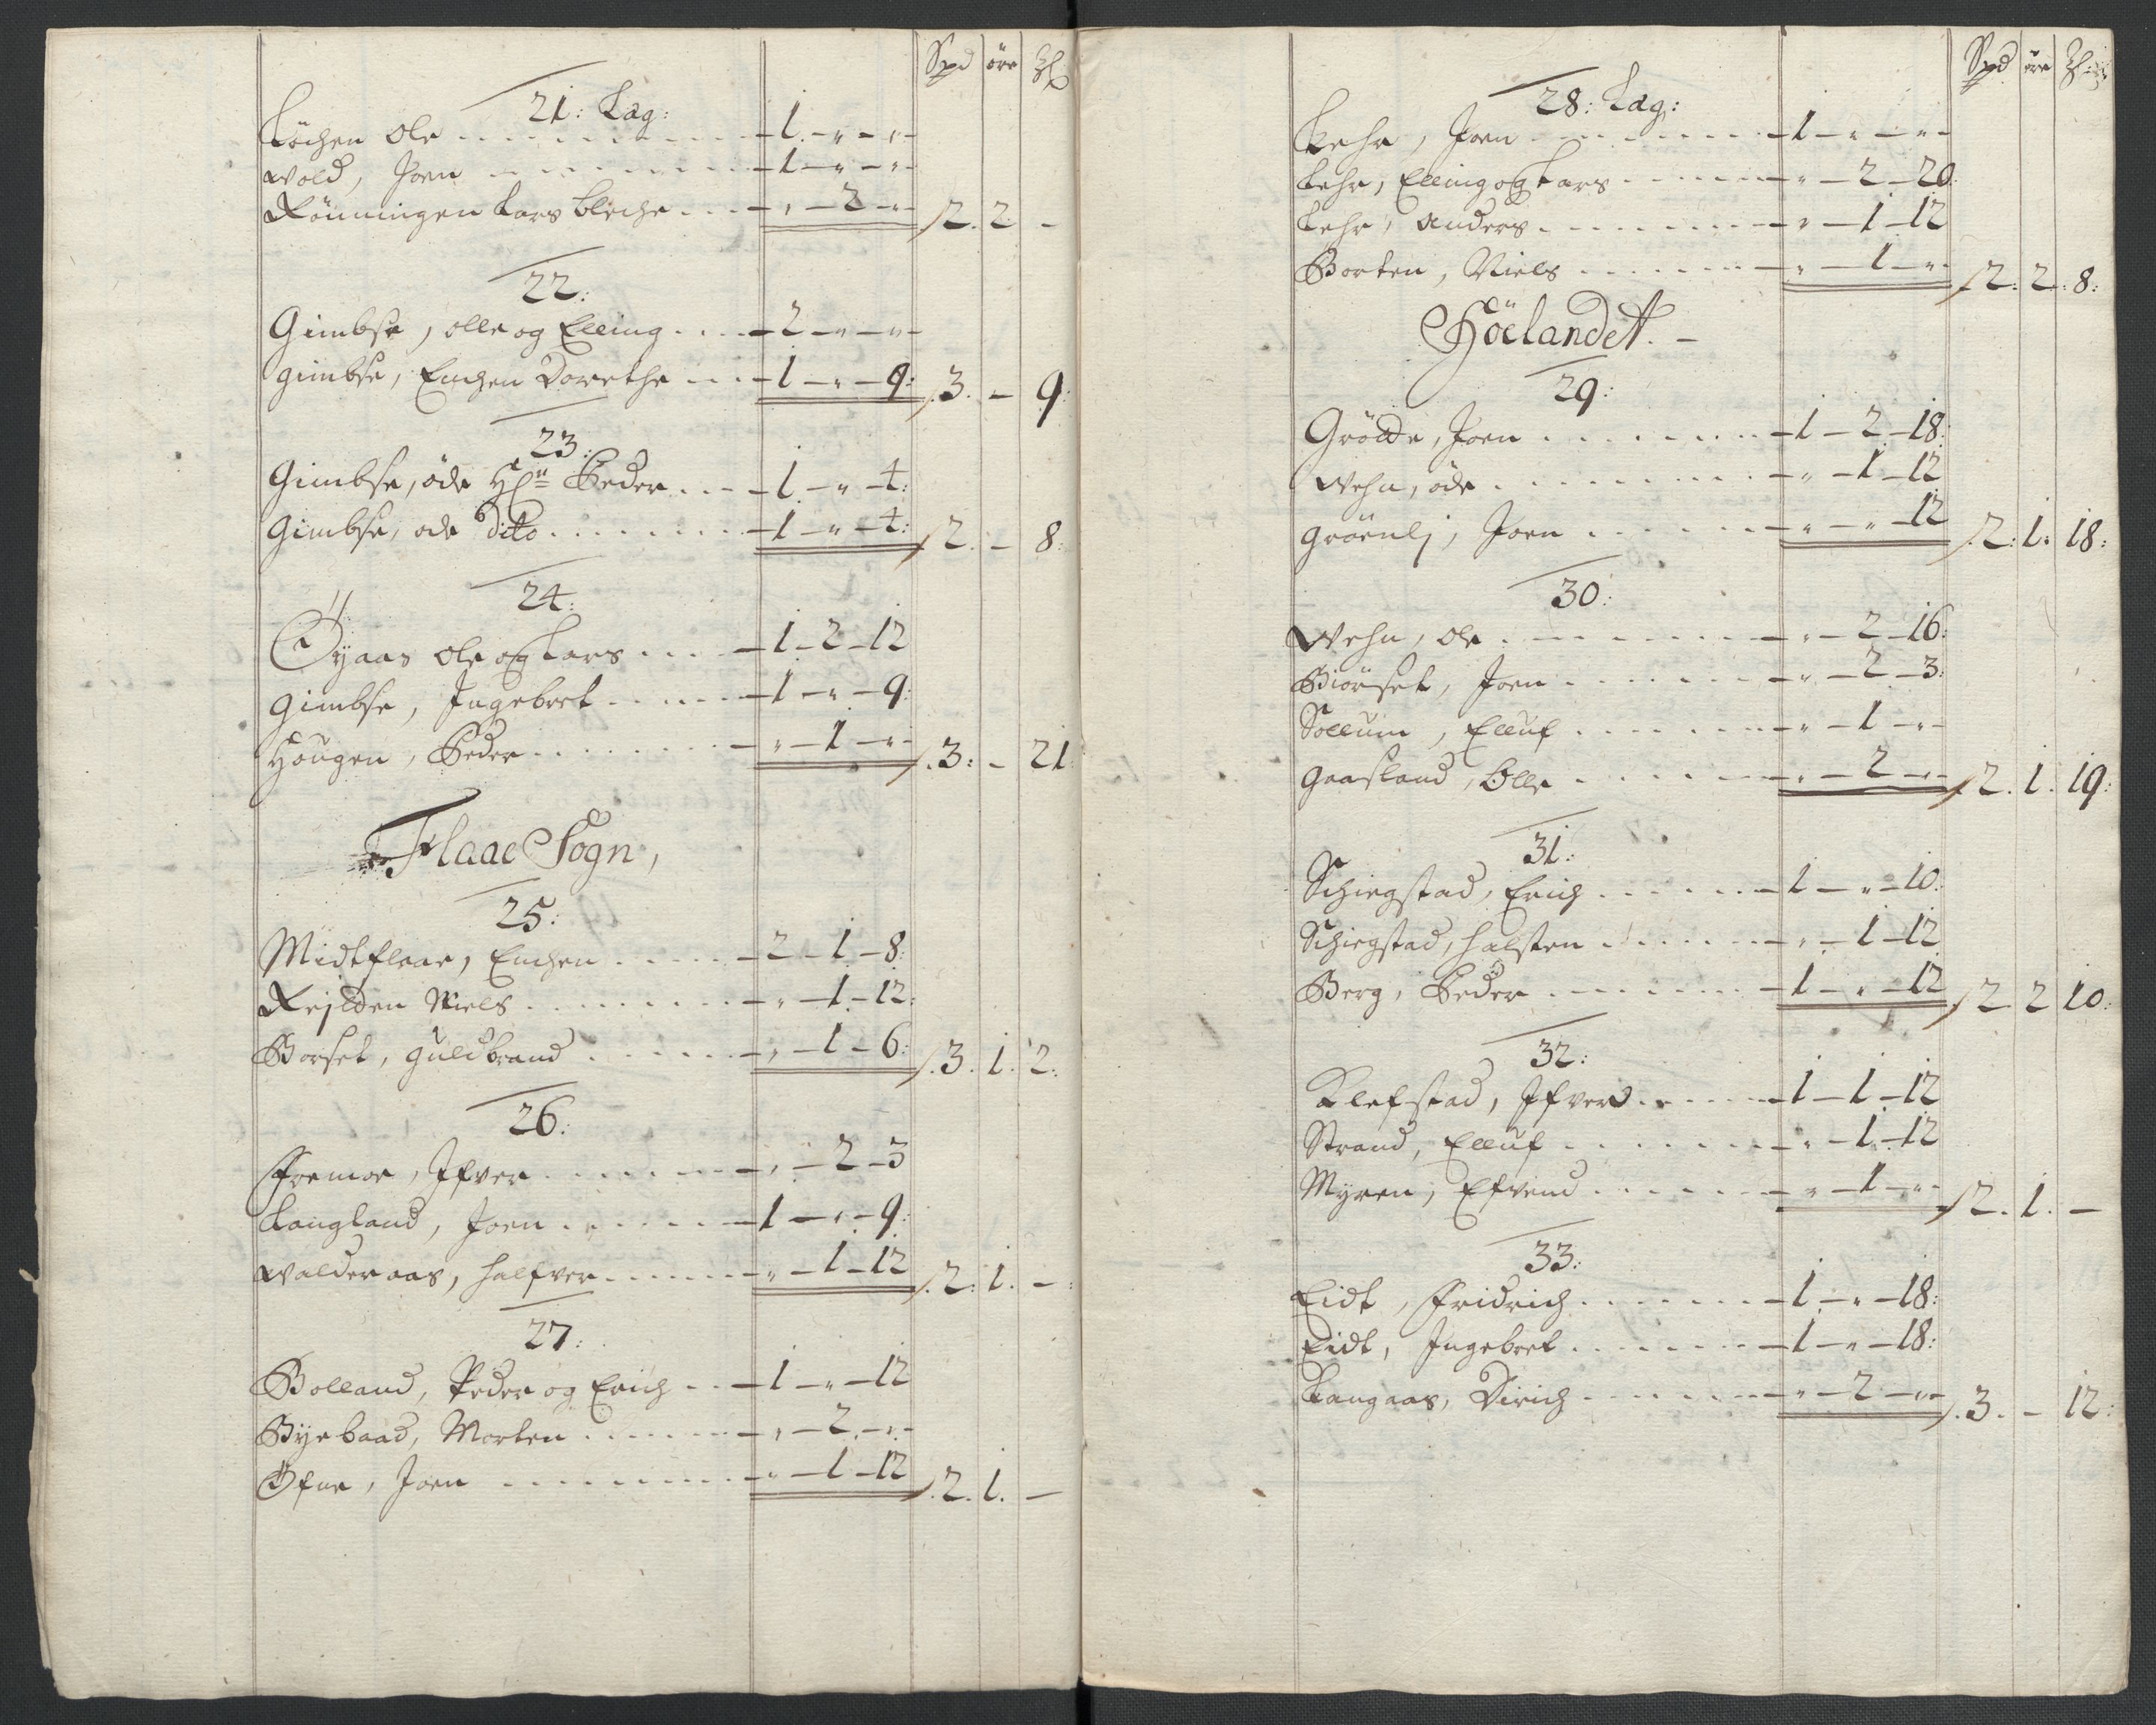 Spd öre
21: Lag:
Löchen Ole - 1 - " - "
Wold, Joen - 1 - " - "
Rönningen Lars Bleche - " - 2 - " 2. 2 -
22:
Gimbse, olle og Elling - 2 - " - "
gimbse, Enchen Dorethe - 1 - " - 9: 3. - 9:
23:
Gimbse, öde Hr Peder - 1 - " - 4:
Gimbse, öde Dito - 1 - " - 4: 2. - 8:
24:
Öyaas Ole og Lars - 1 - 2 - 12
gimbse, Ingebret - 1 - " - 9:
Hougen, Peder - " - 1 - " 3: - 21
Flaae Sogn,
25:
Midtflaae, Enchen - 2 - 1 - 8:
Rejtden Niels - " - 1 - 12:
Borset, guldbrand - " - 1 - 6: 3. 1. 2:
26:
Fremoe, Ifver - " - 2 - 3
Langland, Joen - 1 - " - 9:
Walderaas, Halfver - " - 1 - 12 2. 1. -
27:
Bolland, Peder og Erich - 1 - " - 12
Byebaad, Morten - " - 2 - "
Öfne, Joen - " - 1 - 12 2. 1. -
Spd öre
28: Lag:
Lehr, Joen - 1 - " - "
Lehr, Elling og Lars - " - 2 - 20
Lehr, Anders - " - 1 - 12
Borten, Niels - " - 1 - " 2. 2. 8:
Höelandet. -
29:
Grödde, Joen - 1 - 2 - 18:
Wehn, öde - " - 1 - 12
grönlj, Joen - " - " - 12 2: 1: 18:
30:
Wehn, Ole - " - 2 - 16:
Biörset, Joen - " - 2 - 3:
Sollum, Elluf - " - 1 - "
gaasland, Olle - " - 2 - " 2. 1. 19:
31:
Schiegstad, Erich - 1 - " - 10:
Schiegstad, Halsten - " - 1 - 12
Berg, Peder - 1 - " - 12 2 2 10:
32:
Klefstad, Ifver - 1 - 1 - 12
Strand, Elluf - " - 1 - 12
Myren, Efvend - " - 1 - " 2. 1. -
33:
Eidt, Fridrich - 1 - " - 18:
Eidt, Ingebret - 1 - " - 18:
Langaas, Dirich - " - 2 - " 3. - 12: